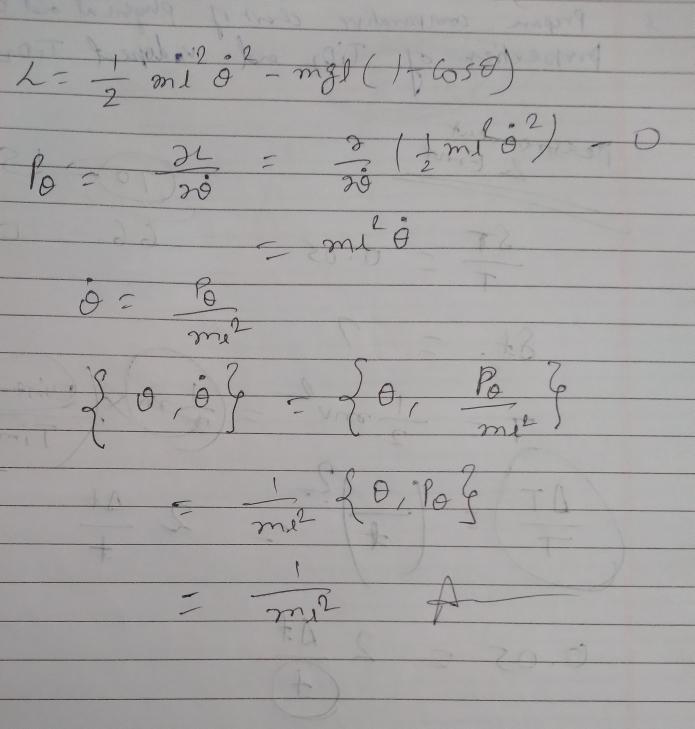 L = 1/2 ml² θ̇² - mgl (1 - cosθ)
Pθ = ∂L/∂θ̇ = ∂/∂θ̇ (1/2 ml² θ̇²) - 0
= ml² θ̇
θ̇ = Pθ/ml²
{θ, θ̇} = {θ, Pθ/ml²}
= 1/ml² {θ, Pθ}
= 1/ml² A